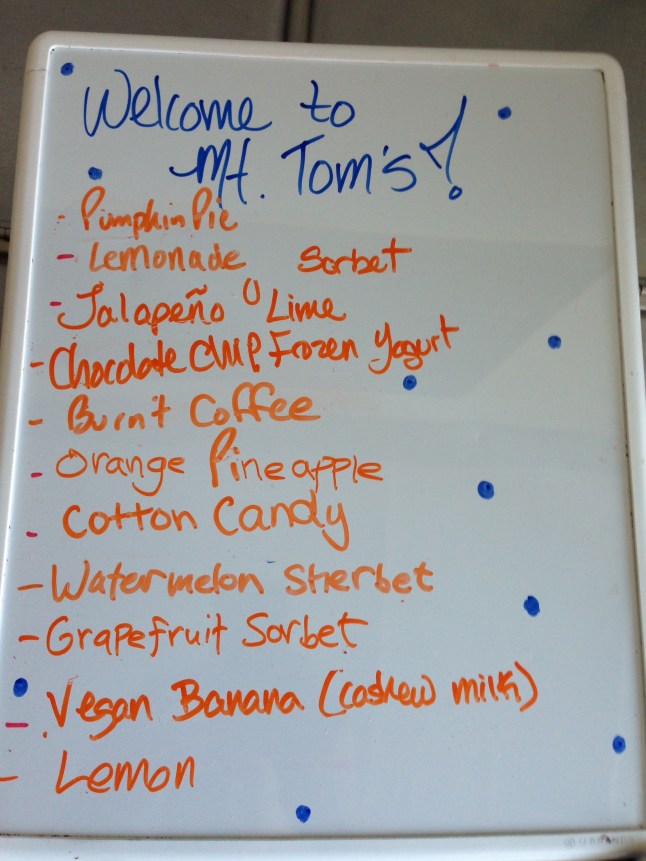 Welcome to
Mt. Tom's!
- Pumpkin Pie
- Lemonade Sorbet
- Jalapeño Lime
- Chocolate Chip Frozen Yogurt
- Burnt Coffee
- Orange Pineapple
- Cotton Candy
- Watermelon Sherbet
- Grapefruit Sorbet
- Vegan Banana (cashew milk)
- Lemon